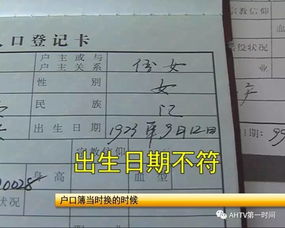 口登记卡
户主或与
户主关系
女
性别
女
民族
汉
出生日期
1923年9月12日
宗教信仰
0028
身高
血型
出生日期不符
户口簿当时换的时候
AHTV第一时间